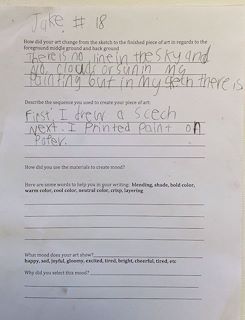 Jake # 18
How did your art change from the sketch to the finished piece of art in regards to the
foreground middle ground and back ground
There is no line in the sky and
no clouds or sun in my
painting but in my sketh there is
Describe the sequence you used to create your piece of art:
First, I drew a scech
Next. I Printed paint on
Pater.
How did you use the materials to create mood?
Here are some words to help you in your writing: blending, shade, bold color,
warm color, cool color, neutral color, crisp, layering
What mood does your art show?
happy, sad, joyful, gloomy, excited, tired, bright, cheerful, tired, etc
Why did you select this mood?